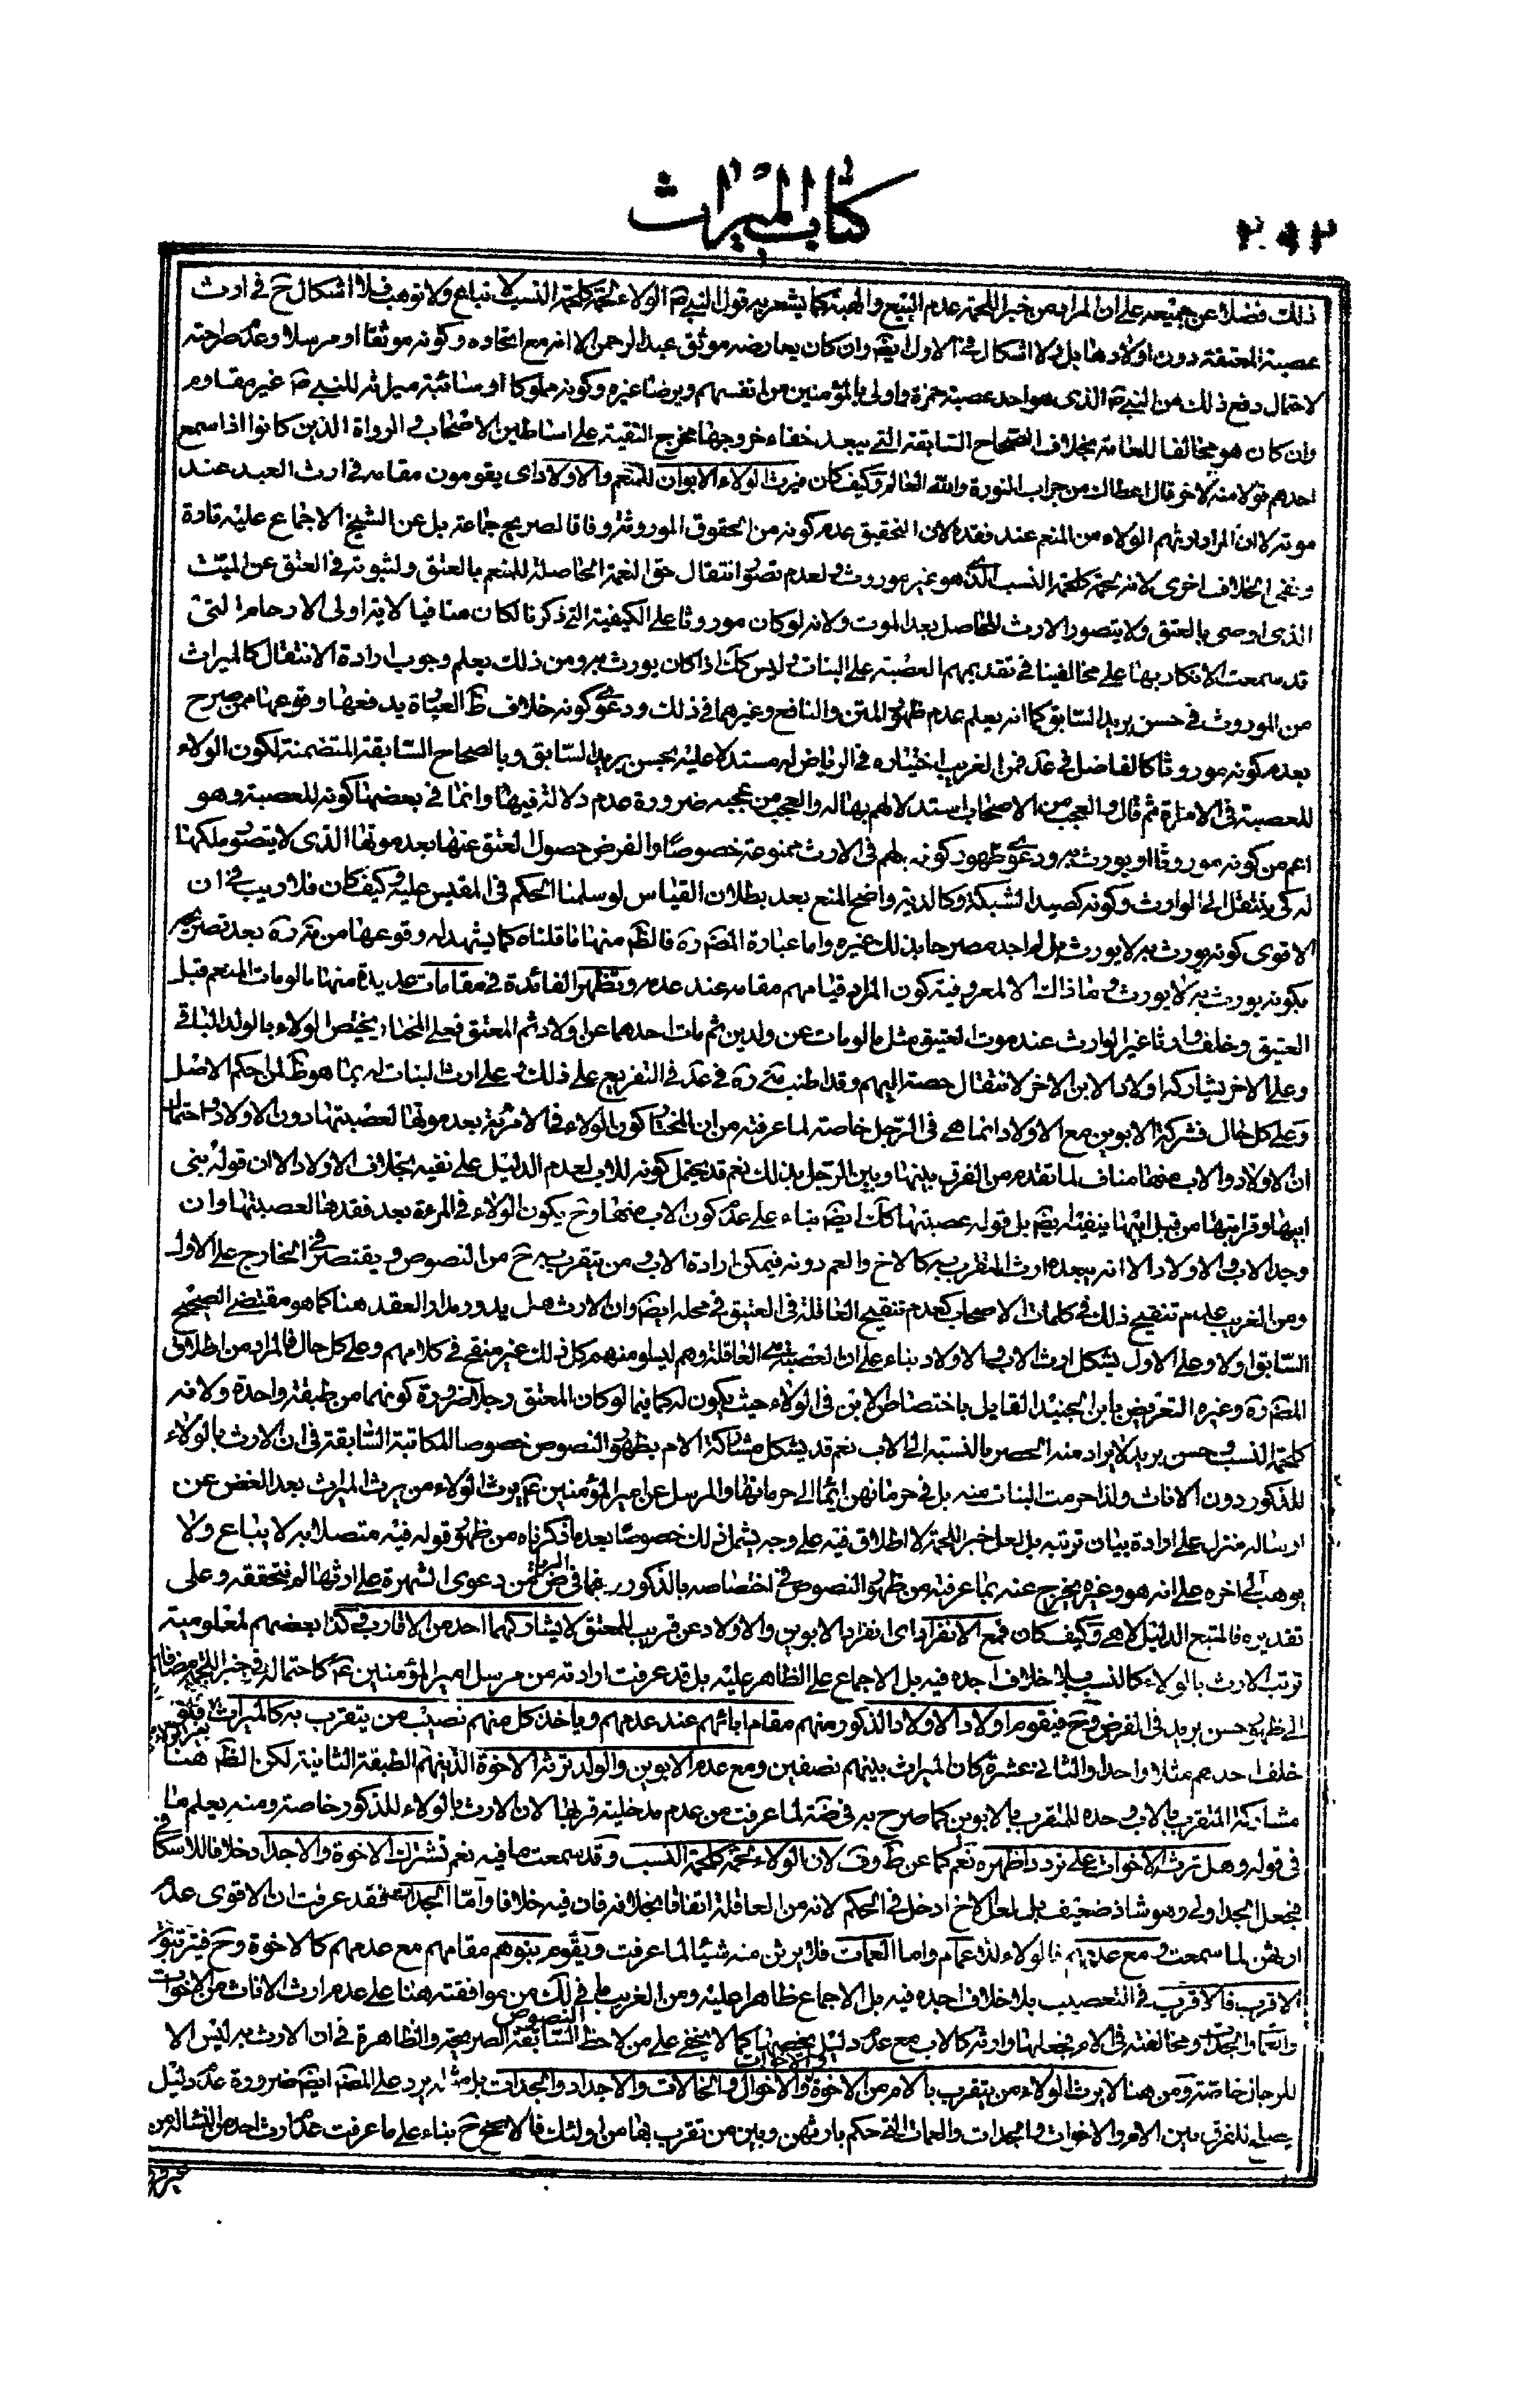 كتاب الميراث
ذلك فضلا عن جميعه على ان المراد من خبر اللحمة عدم البيع والهبة كما يشعر به قول النبى ص الولاء لحمة كلحمة النسب لا تباع ولا توهب فلا اشكال ح فى ارث
عصبة المعتقة دون اولادها بل ولا اشكال فى الاول ايضا وان كان يعارضه موثق عبد الرحمن الا انه مع اتحاده وكونه موثقا او مرسلا وعدم صراحته
لاحتمال دفع ذلك من النبى ص الذى هو احد عصبة حمزة واولى بالمؤمنين من انفسهم وبرضا غيره وكونه مملوكا او سائبة ميراثه للنبى ص غير مقاوم
وان كان هو مخالفا للعامة بخلاف الصحاح السابقة التى يبعد خفاء خروجها مخرج التقية على اساطين الاصحاب والرواة الذين كانوا اذا سمع
احدهم قولا منه لاخر قال اعطاك من جراب النورة والله العالم وكيف كان فيرث الولاء الابوان للمنعم والاولاد اى يقومون مقامه فى ارث العبد عند
موته لا ان المراد ارثهم الولاء من المنعم عند فقده لان التحقيق عدم كونه من الحقوق الموروثة وفاقا لصريح جماعة بل عن الشيخ الاجماع عليه تارة
ونفى الخلاف اخرى لانه لحمة كلحمة النسب الذى هو غير موروث ولعدم تصور انتقال حق النعمة الحاصلة للمنعم بالعتق ولثبوته فى العتق عن الميت
الذى اوصى بالعتق ولا يتصور الارث للحاصل بعد الموت ولانه لو كان موروثا على الكيفية التى ذكرنا لكان منافيا لاية اولى الارحام التى
قد سمعت الانكار بها على مخالفينا فى تقديمهم العصبة على البنات وليس كك اذا كان يورث به ومن ذلك يعلم وجوب ارادة الانتقال كالميراث
من الموروث فى حسن بريد السابق كما انه يعلم عدم ظهور المتن والنافع وغيرهما فى ذلك ودعوى كونه خلاف ظ العبارة يدفعها وقوعها ممن صرح
بعدم كونه موروثا كالفاضل فى عد فمن الغريب اختياره فى الرياض له مستدلا عليه بحسن بريد السابق وبالصحاح السابقة المتضمنة لكون الولاء
للعصبة فى الامراة ثم قال والعجب من الاصحاب استدلالهم بها له والعجب من عجبه ضرورة عدم دلالة فيها وانما فى بعضها كونه للعصبة وهو
اعم من كونه موروثا او يورث به ودعوى ظهور كونه لهم فى الارث ممنوعة خصوصا والفرض حصول العتق عنها بعد موتها الذى لا يتصور ملكها
له كى ينتقل الى الوارث وكونه كصيد الشبكة وكالدية واضح المنع بعد بطلان القياس لو سلمنا الحكم فى المقيس عليه وكيف كان فلا ريب فى ان
الاقوى كونه يورث به لا يورث بل لم اجد مصرحا بذلك غيره واما عبارة المصنف ره فالظ منها ما قلناه كما يشهد له وقوعها من ره بعد تصريحه
بكونه يورث به لا يورث وما ذاك الا لمعروفية كون المراد قيامهم مقامه عند عدمه وتظهر الفائدة فى مقامات عديدة منها ما لو مات المنعم قبل
العتيق وخلف وارثا غير الوارث عند موت العتيق مثل ما لو مات عن ولدين ثم مات احدهما عن اولاد ثم المعتق فعلى المختار يختص الولاء بالولد الباقى
وعلى الاخر يشاركه اولاد الابن الاخر لانتقال حصته اليهم وقد اطنب ره فى عد فى التفريع على ذلك وعلى ارث البنات له بما هو ظ لمن احكم الاصل
وعلى كل حال فشركة الابوين مع الاولاد انما هى فى الرجل خاصة لما عرفته من ان المختار كون الولاء فى الامرئة بعد موتها لعصبتها دون الاولاد واحتمال
ان الاولاد والاب منها مناف لما تقدم من الفرق بينها وبين الرجل بذلك نعم قد يحتمل كونه للاب لعدم الدليل على نفيه بخلاف الاولاد الا ان قوله بنى
ابيها وقرابتها من قبل ابيها ينفيه ايضا بل قوله عصبتها كك ايضا بناء على عدم كون الاب منها وح يكون الولاء فى المرءة بعد فقدها لعصبتها وان
وجد الاب والاولاد الا انه يبعده ارث المتقرب به كالاخ والعم دونه فيمكن ارادة الاب ومن يتقرب به ح من النصوص ويقتصر فى الخارج على الاولاد
ومن الغريب عدم تنقيح ذلك فى كلمات الاصحاب كعدم تنقيح العاقلة فى العتيق فى محله ايضا وان الارث هل يدور مدار العقد هنا كما هو مقتضى الصحيح
السابق اولا وعلى الاول يشكل ارث الاب والاولاد بناء على ان العصبة هى العاقلة وهم ليسوا منهم كل ذلك غير منقح فى كلامهم وعلى كل حال فالمراد من اطلاق
المصنف ره وغيره التعريض بابن الجنيد القايل باختصاص الابن فى الولاء حيث يكون له كما فيما لو كان المعتق رجلا ضرورة كونهما من طبقة واحدة ولانه
كلحمة النسب وحسن بريد لا يراد منه الحصر بالنسبة الى الاب نعم قد يشكل مشاركة الام بظهور النصوص خصوصا المكاتبة السابقة فى ان الارث بالولاء
للذكور دون الاناث ولذا حرمت البنات منه بل فى حرمانهن ايماء الى حرمانها والمرسل عن امير المؤمنين ع يرث الولاء من يرث الميراث بعد الغض عن
ارساله منزل على ارادة بيان ترتبه بل لعل خبر اللحمة لا اطلاق فيه على وجه يشمل ذلك خصوصا بعد ما ذكرناه من ظهور قوله فيه متصلا به لا يباع ولا
يوهب الى اخره على انه هو وغيره يخرج عنه بما عرفته من ظهور النصوص فى اختصاصه بالذكور فما فى ض من دعوى الشهرة على ارثها لم نتحققه وعلى
تقديره فالمتبع الدليل لا هى وكيف كان فمع الانفراد اى انفراد الابوين والاولاد عن قريب للمعتق لا يشاركهما احد من الاقارب كذا بعضهم لمعلومية
ترتب الارث بالولاء كالنسب بلا خلاف اجده فيه بل الاجماع على الظاهر عليه بل قد عرفت ارادته من مرسل امير المؤمنين ع كاحتماله فى خبر اللحمة مضافا
الى ظهور حسن بريد فى الفرض وح فيقوم اولاد الاولاد الذكور منهم مقام ابائهم عند عدمهم وياخذ كل منهم نصيب من يتقرب به كالميراث فلو
خلف احدهم مثلا واحدا والثانى عشرة كان الميراث بينهم نصفين ومع عدم الابوين والولد ترثه الاخوة الذين هم الطبقة الثانية لكن الظ هنا
مشاركة المتقرب بالاب وحده للمتقرب بالابوين كما صرح به فى ضة لما عرفت من عدم مدخلية قربها لان الارث بالولاء للذكور خاصة ومنه يعلم ما
فى قوله وهل ترث الاخوات على تردد اظهره نعم كما عن ط وف لان الولاء لحمة كلحمة النسب وقد سمعت ما فيه نعم تشترك الاخوة والاجداد خلافا للاسكافى
فجعل الجد اولى وهو شاذ ضعيف بل لعل الاخ ادخل فى الحكم لانه من العاقلة اتفاقا بخلافه فان فيه خلافا واما الجدات فقد عرفت ان الاقوى عدم
ارثهن لما سمعت ومع عدمهم فالولاء للاعمام واما العمات فلا يرثن منه شيئا لما عرفت ويقوم بنوهم مقامهم مع عدمهم كالاخوة وح فيترتبون
الاقرب فالاقرب فى التعصيب بلا خلاف اجده فيه بل الاجماع ظاهرا عليه ومن الغريب ما فى لك من موافقته هنا على عدم ارث الاناث من الاخوات
والعمات والجدات ومخالفته فى الام فجعلها وارثة كالاب مع عدم دليل يخصها كما لا يخفى على من لاحظ النصوص السابقة الصريحة والظاهرة فى ان الارث به ليس الا
للرجال خاصة ومن هنا لا يرث الولاء من يتقرب بالام من الاخوة والاخوات والاخوال والخالات والاجداد والجدات بل منه يرد على المصنف ايضا ضرورة عدم دليل
يصلح للفرق بين الام والاخوات والجدات والعمات التى حكم بارثهن وبين من تقرب بها من اولئك فالاصح ح بناء على ما عرفت عدم ارث احد من النساء من